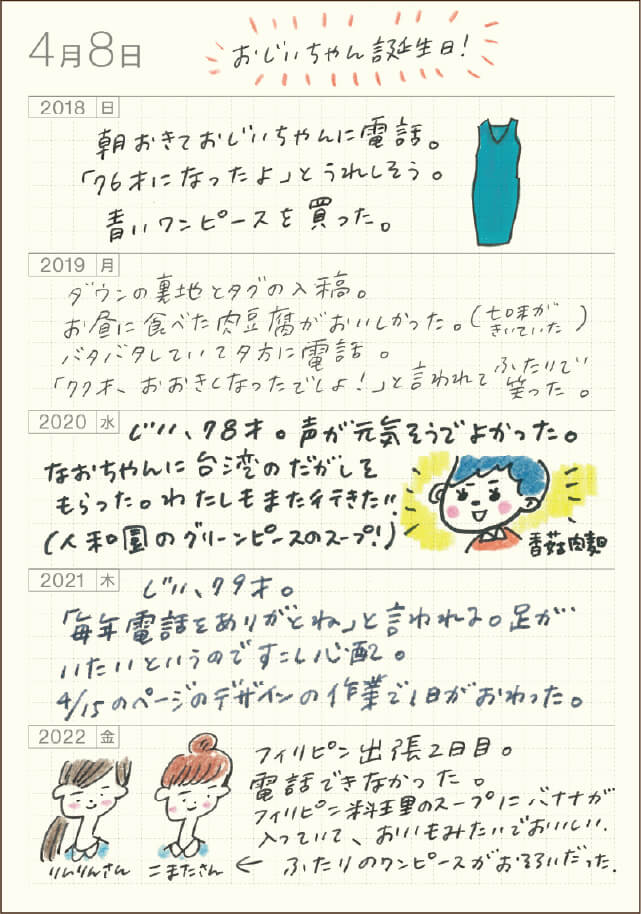 4月8日
おじいちゃん誕生日!
2018 日
朝おきておじいちゃんに電話。
「76才になったよ」とうれしそう。
青いワンピースを買った。
2019 月
ダウンの裏地とタグの入稿。
お昼に食べた肉豆腐がおいしかった。(七味がきいていた)
バタバタしていて夕方に電話。
「77才、おおきくなったでしょ!」と言われてふたりで笑った。
2020 水
じいい、78才。声が元気そうでよかった。
なおちゃんに台湾のだがしを
もらった。わたしもまた行きたい!!
(人和園のグリーンピースのスープ!)
香菇肉麵
2021 木
じいい、79才。
「毎年電話をありがとね」と言われる。足が
いたいというのですこし心配。
4/15のページのデザインの作業で1日がおわった。
2022 金
フィリピン出張2日目。
電話できなかった。
フィリピン料理のスープにバナナが
入っていて、おいもみたいでおいしい。
りんりんさん こまたさん ← ふたりのワンピースがおそろいだった。